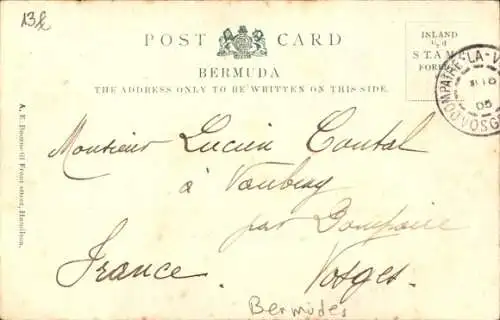 13£
POST CARD
BERMUDA
THE ADDRESS ONLY TO BE WRITTEN ON THIS SIDE.
INLAND
½d
STAMP
FOREIGN
DOMPAIRE-LA-V
05
VOSGES
A. E. Bourne 61 Front street, Hamilton.
Monsieur Lucien Coutal
à Vaubexy
par Dompaire
France. Vosges.
Bermudes